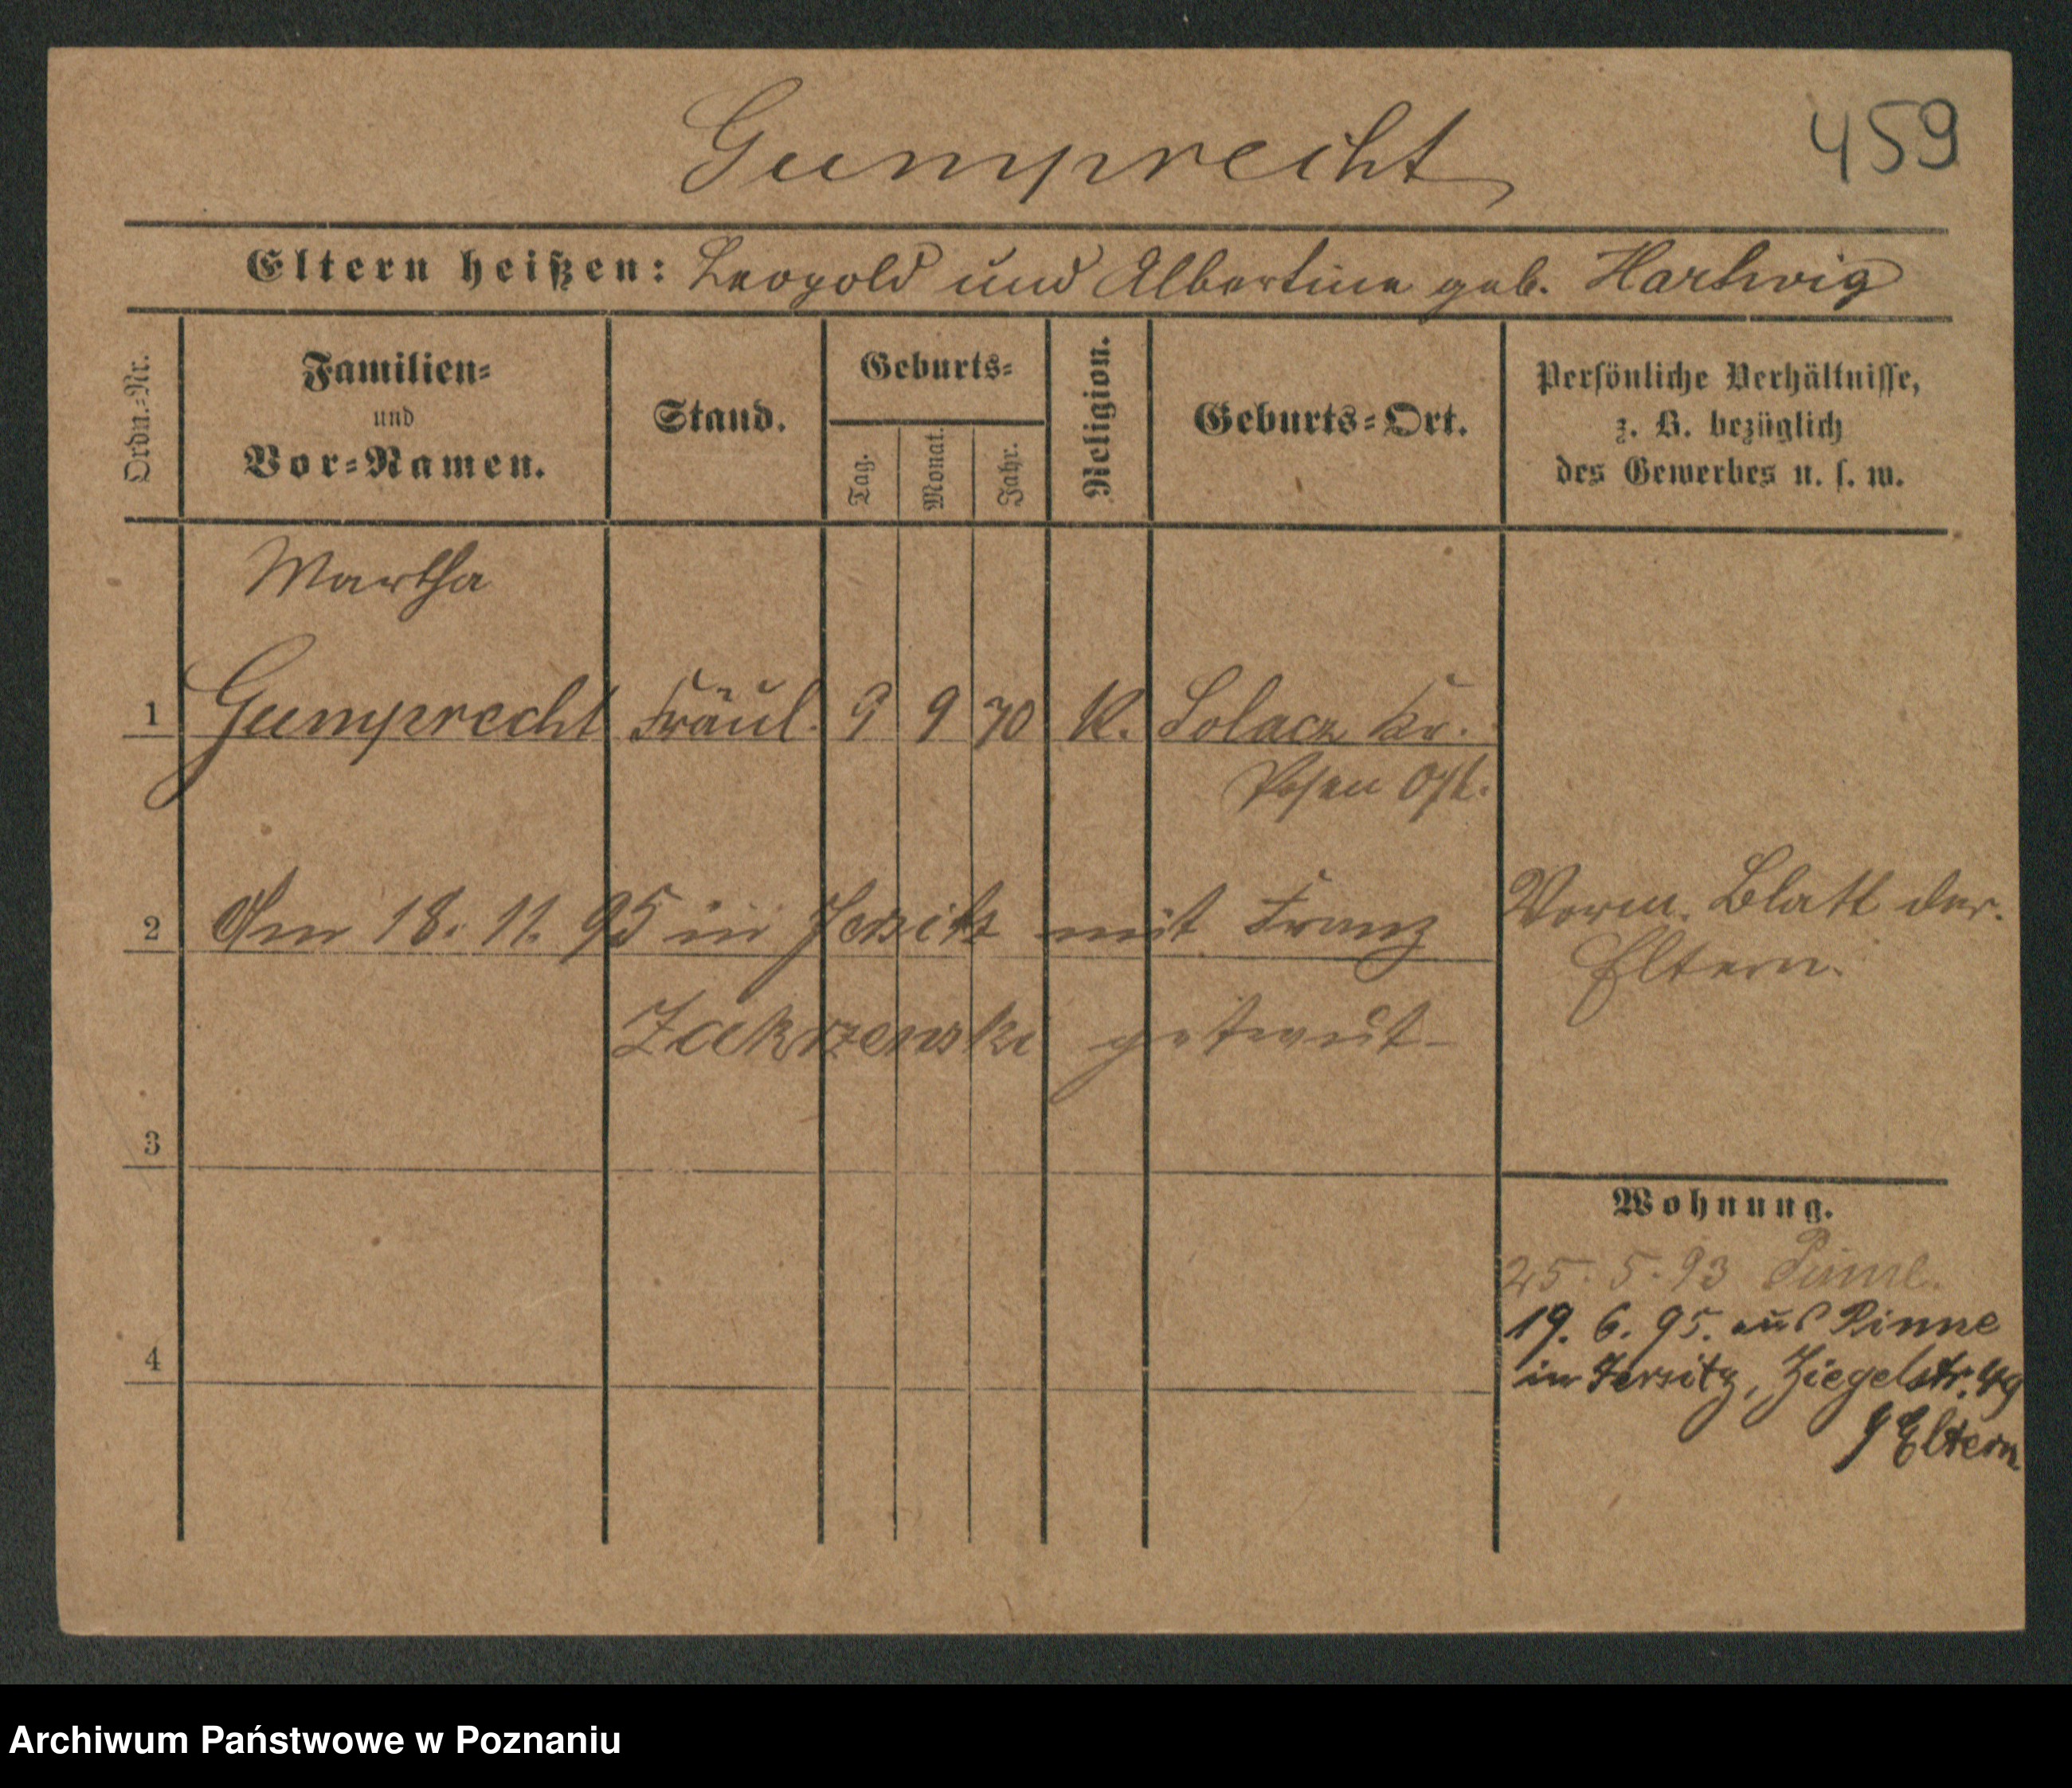 Gumprecht
459
Eltern heißen: Leopold und Albertine geb. Hartwig
Ordn.-Nr.
Familien-
und
Vor-Namen.
Stand.
Geburts-
Tag.
Monat.
Jahr.
Religion.
Geburts-Ort.
Persönliche Verhältnisse,
z. B. bezüglich
des Gewerbes u. s. w.
Martha
1 Gumprecht Fräul. 9 9 70 K. Solacz Kr.
Posen Ost.
2 Am 18. 11. 95 in Jersitz mit Franz
Zakrzewski getraut
Vorm. Blatt der
Eltern.
3
Wohnung.
25. 5. 93
19. 6. 95. aus Pinne
4
in Jersitz, Ziegelstr. 49
Eltern
Archiwum Państwowe w Poznaniu